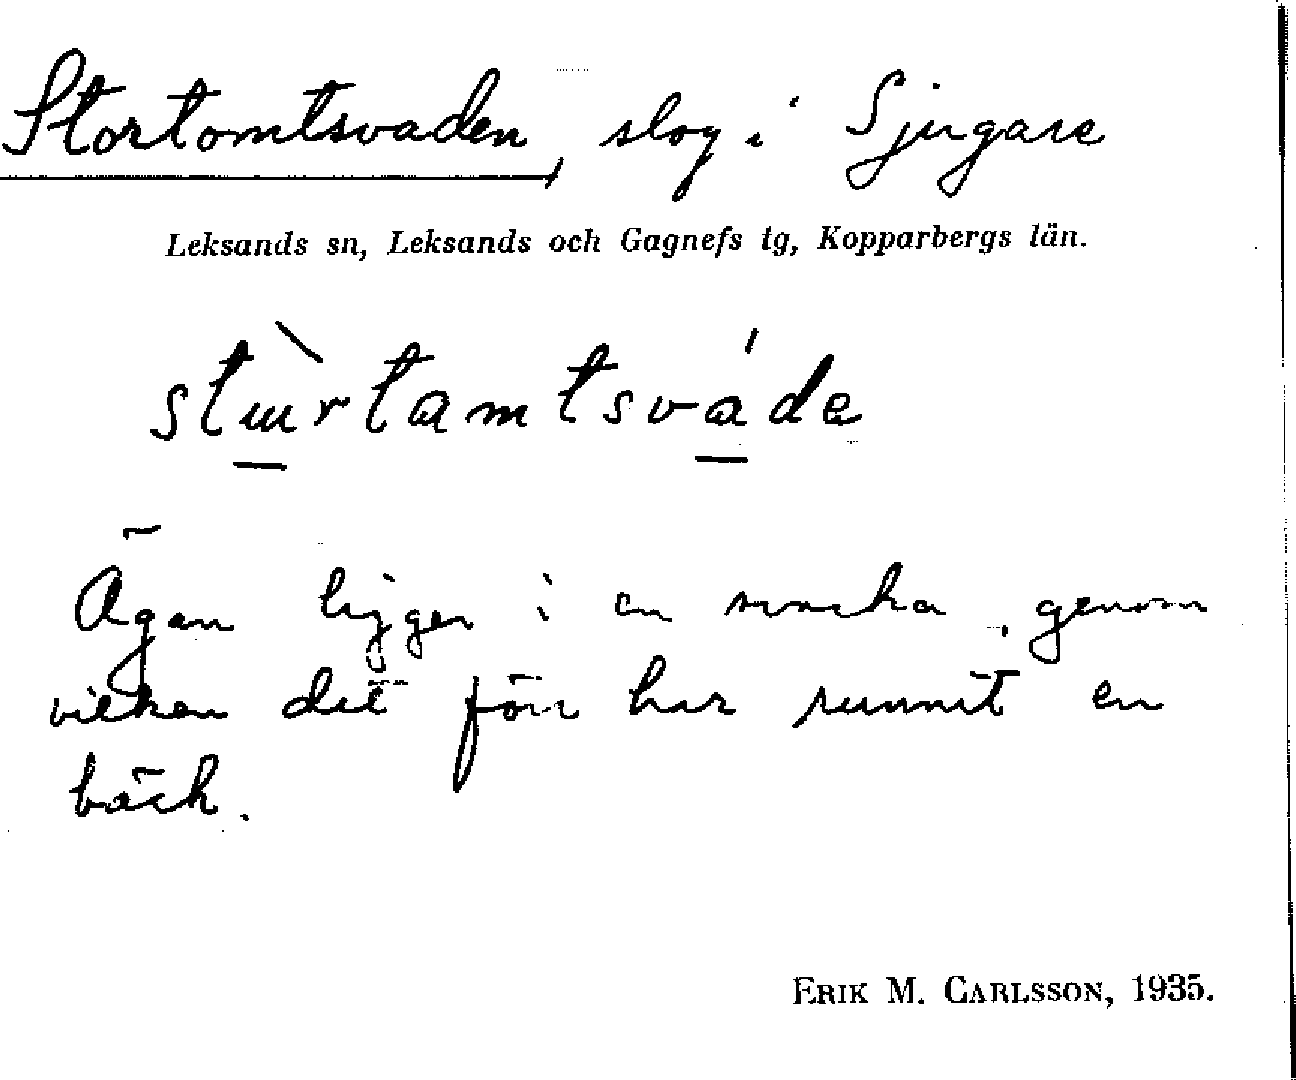 Stortomtsvaden, slog i Sjugare
Leksands sn, Leksands och Gagnefs tg, Kopparbergs län.
stɯ̀rtamtsváde
Ägan ligger i en svacka, genom
vilken det förr har runnit en
bäck.
ERIK M. CARLSSON, 1935.